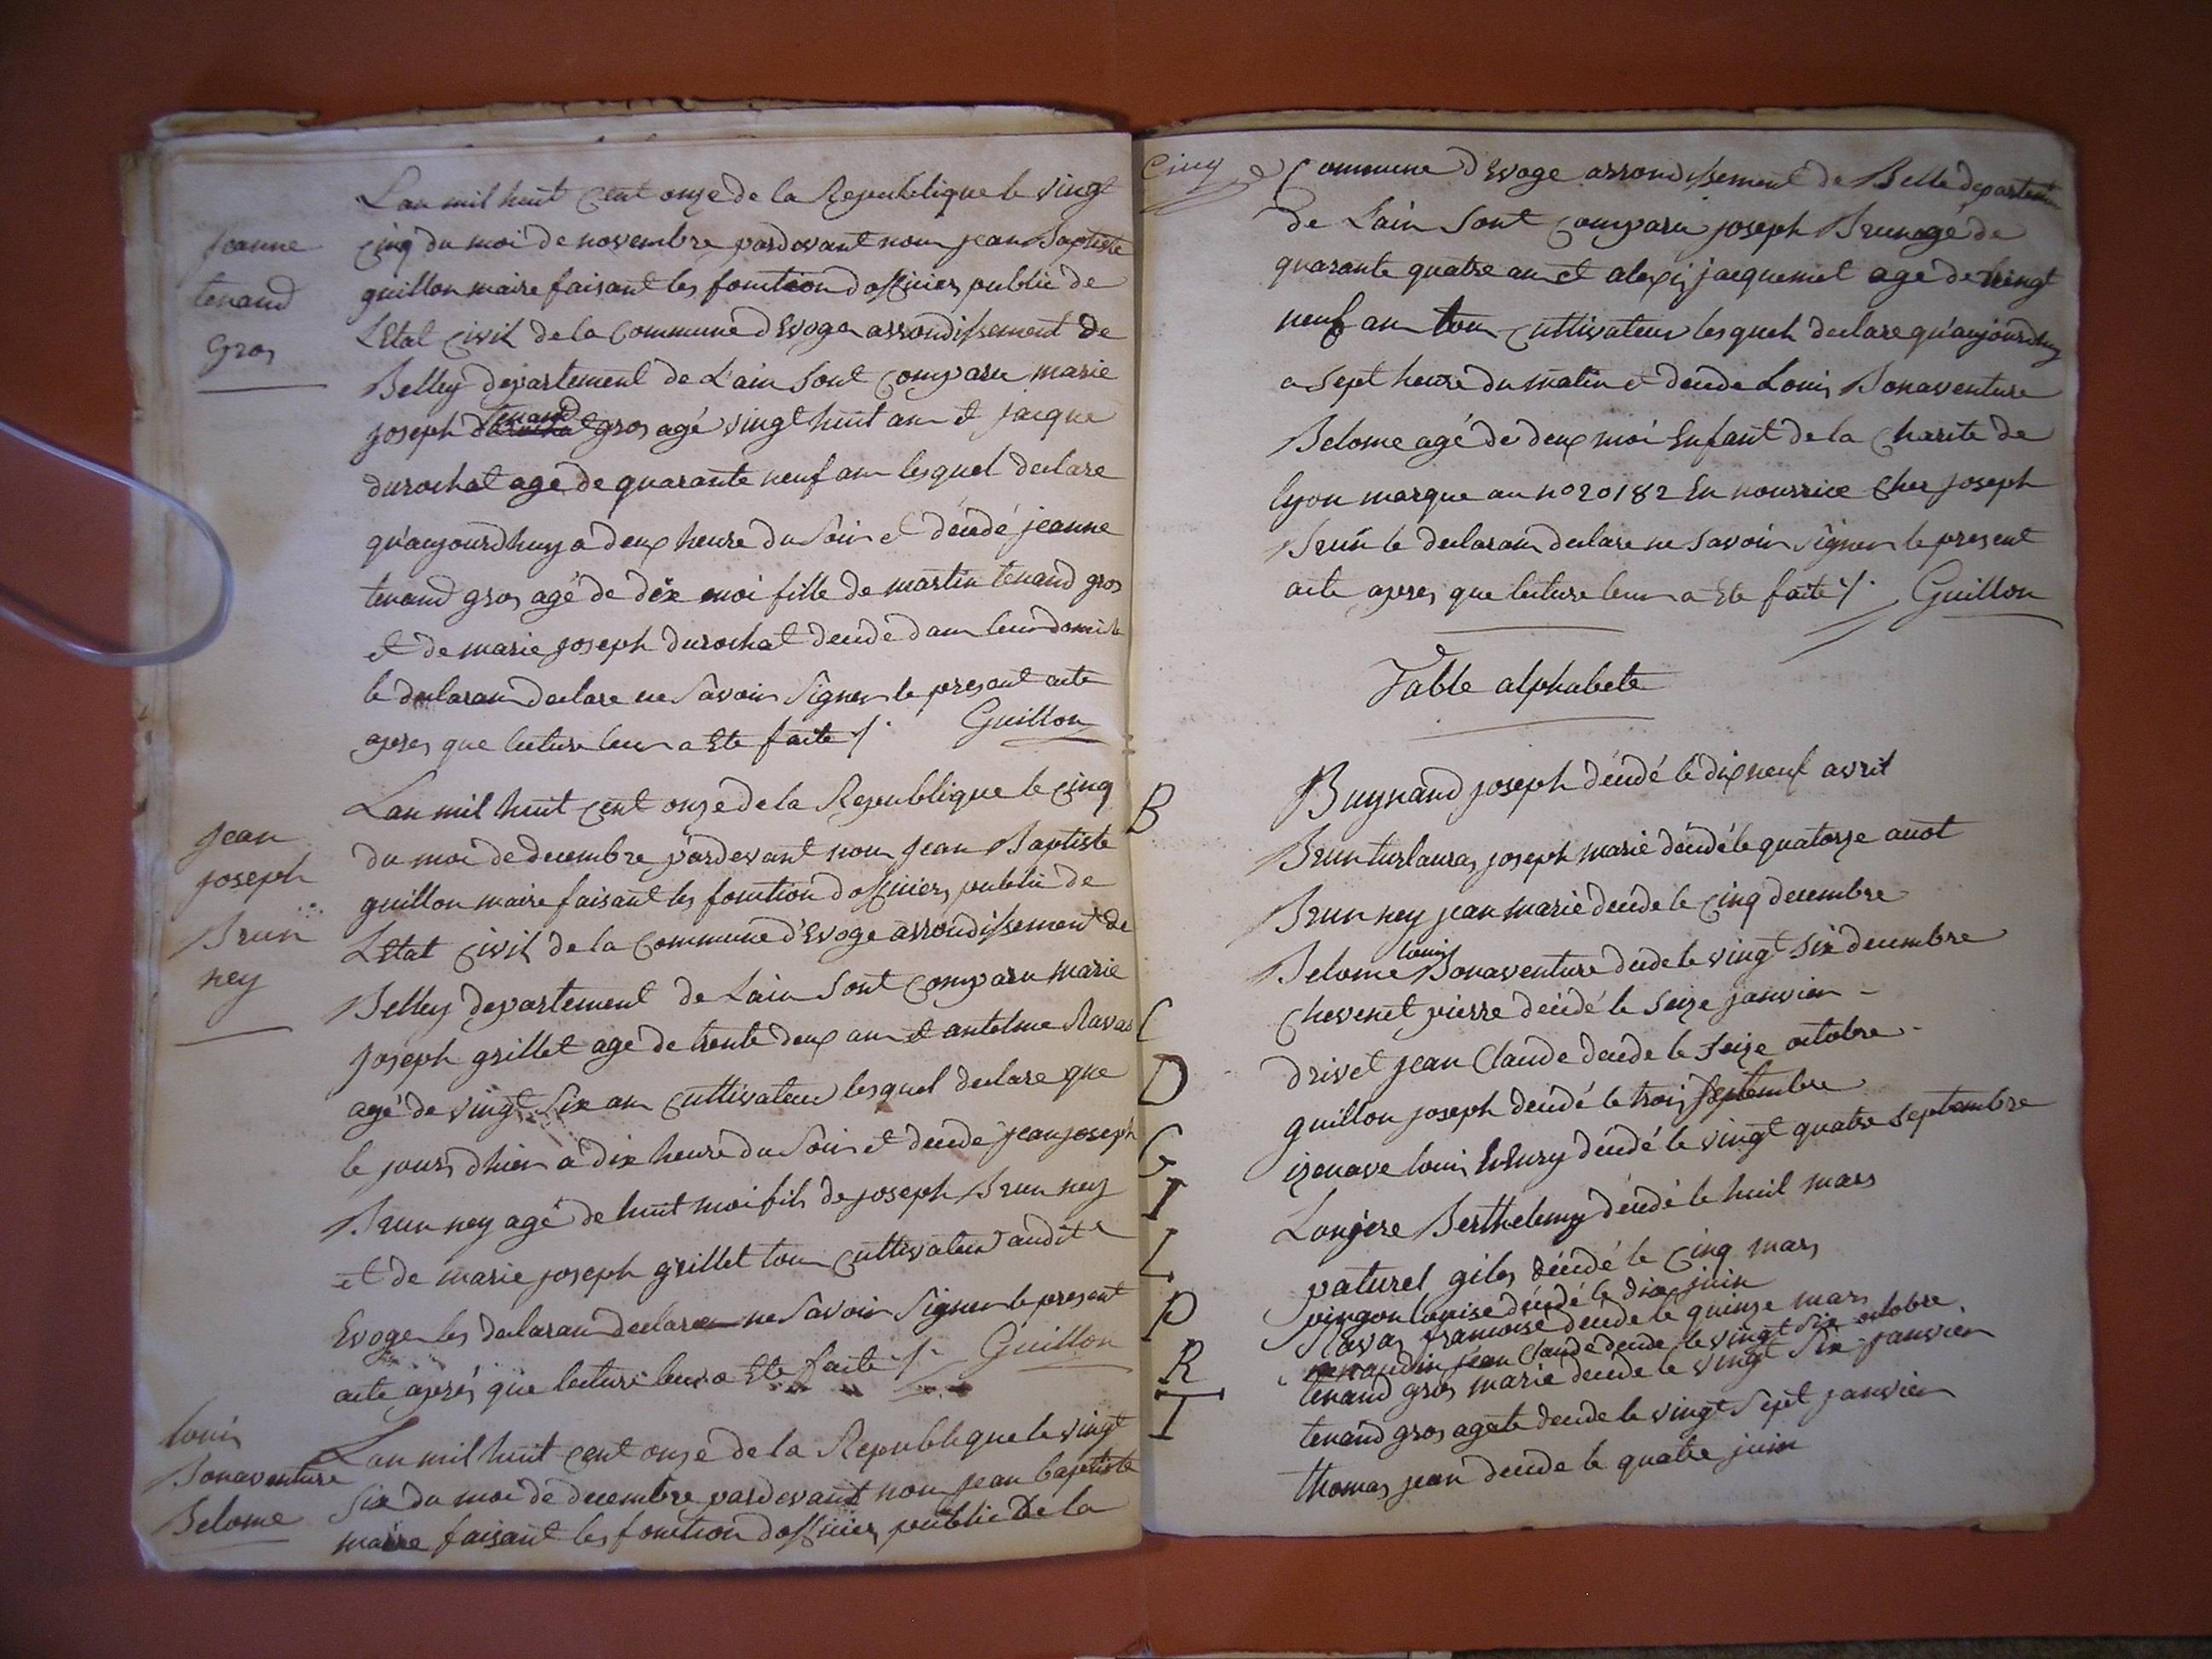 Lan mil huit Cent onze de la Republique le vingt
jeanne
tenand
Gros
Cinq du moi de novembre pardevant nou jean Baptiste
guillon maire faisant les fonction dofficier public de
LEtat Civil de la Commune d'Evoge arrondissement de
Belley departement de L'ain Sont Comparu marie
joseph tenand gros agé vingt huit an et jacque
durochat agé de quarante neuf an lesquel declare
qu'aujourdhuy a deux heure du Soir et décédé jeanne
tenand gros agé de dix moi fille de martin tenand gros
et de marie joseph durochat decede dan leur domicile
le declaran declare ne Savoir Signer le present acte
apres que lecture leur a Ete faite /. Guillon
Lan mil huit Cent onze de la Republique le Cinq
jean
joseph
Brun
ney
du moi de decembre pardevant nou jean Baptiste
guillon maire faisant les fonction dofficier public de
LEtat Civil de la Commune d'Evoge arrondissement de
Belley departement de Lain Sont Comparu marie
joseph grillet agé de trente deux an et antelme Ravas
agé de vingt Six an Cultivateur lesquel declare que
le jours dhier a dix heure du Soir et decede jean joseph
Brun ney agé de huit moi fils de joseph Brun ney
et de marie joseph grillet tou Cultivateur audit
Evoge les declaran declare ne Savoir Signer le present
acte aprés que lecture leur a Ete faite /. Guillon
louis
Bonaventure
Belome
Lan mil huit Cent onze de la Republique le vingt
Six du moi de decembre pardevant nou jean baptiste
maire faisant les fonction dofficier public De la
Cinq
Commune d'Evoge arrondissement de Belle departement
de Lain Sont Comparu joseph Brun agé de
quarante quatre an et alexis jacquemet agé de vingt
neuf an tou Cultivateur lesqueh declare qu'aujourdhuy
a Sept heure du matin et decede Louis Bonaventure
Belome agé de deux moi Enfant de la Charite de
lyon marque au no 20182 En nourrice Cher joseph
Brun le declaran declare ne Savoir Signer le present
acte apres que lecture leur a Ete faite /. Guillon
Table alphabete
B
Buynand joseph décédé le dix neuf avril
Brun turlauras joseph marie décédé le quatorze auot
Brun ney jean marie decede le Cinq decembre
Belome louis Bonaventure decede le vingt Six decembre
C
Chevenet pierre decédé le Seize janvier
D
drivet jean Claude decede le Seize octobre
G
guillon joseph decédé le trois Septembre
I
izenave louis henry décédé le vingt quatre Septembre
L
Longere Berthelemy décédé le huit mars
P
paturel giles décédé le Cinq mars
pingon louise décédé le dix juin
R
Ravas francoise decede le quinze mars
renaudin jean Claude decede le vingt Six octobre
T
tenand gros marie decede le vingt Six janvier
tenand gros agate decede le vingt Sept janvier
thomas jean decede le quatre juin